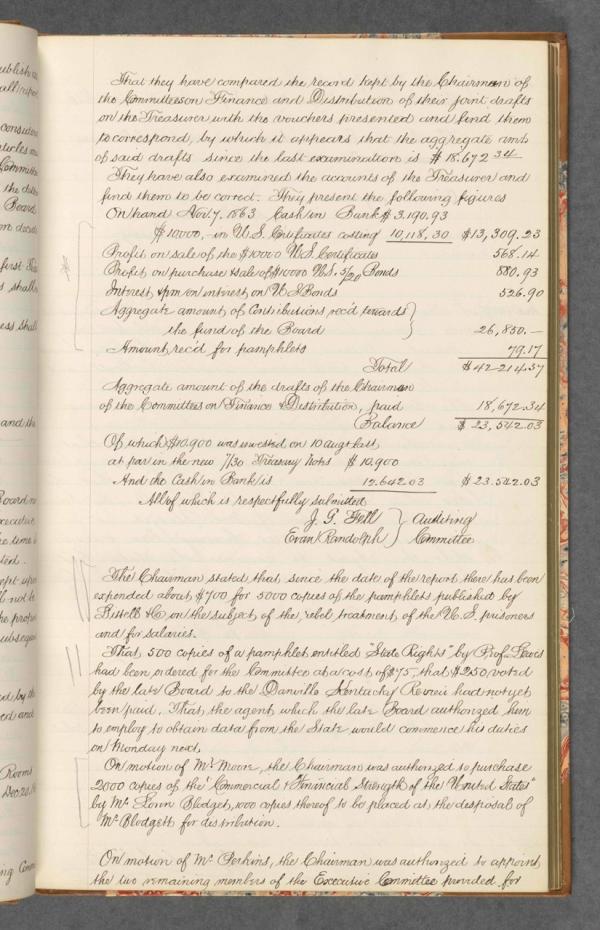 That they have compared the record kept by the Chairman of
the Committees on Finance and Distribution of their joint drafts
on the Treasurer with the vouchers presented and find them
to correspond, by which it appears that the aggregate amt
of said drafts since the last examination is $18.672 34
They have also examined the accounts of the Treasurer and
find them to be correct. They present the following figures
On hand Nov. 7. 1863 Cash in Bank $3.190.93
$10000,- in U.S. Certificates costing 10,118,30 $13,309.23
Profit on sale of the $10000 U.S. Certificates 568.14
Profit on purchase & sale of $10000 U.S. 5/20 Bonds 880.93
Interest & pm on interest on U.S. Bonds 526.90
Aggregate amount of Contributions rec'd towards
the fund of the Board 26,850.—
Amount rec'd for pamphlets 79.17
Total $42-214.37
Aggregate amount of the drafts of the Chairman
of the Committees on Finance & Distribution, paid 18,672.34
Balance $23,542.03
Of which $10.900 was invested on 10 Augt last
at par in the new 7/30 Treasury Notes $10,900
And the Cash in Bank is 12.642.03 $23.542.03
All of which is respectfully submitted
J. G. Fell } Auditing
Evan Randolph } Committee
The Chairman stated that since the date of the report there has been
expended about $700 for 5000 copies of the pamphlets published by
& Co on the subject of the rebel treatment of the U.S. prisoners
and for salaries.
That, 500 copies of a pamphlet entitled "State Rights" by Prof.
had been ordered for the Committee at a cost of $75,- that $250, voted
by the late Board to the Danville Kentucky Review had not yet
been paid. That, the agent which the late Board authorized him
to employ to obtain data from the State would commence his duties
on Monday next,
On motion of Mr. Moore, the Chairman was authorized to purchase
2000 copies of the "Commercial & Financial Strength of the United States"
by Mr. Lorin Blodget, 1000 copies thereof to be placed at the disposal of
Mr. Blodgett for distribution.
On motion of Mr. Perkins, the Chairman was authorized to appoint
the two remaining members of the Executive Committee provided for